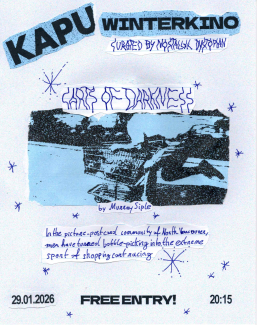 KAPU WINTERKINO
CURATED BY NOSTALGIC DYSTOPIAN
CARTS OF DARKNESS
by Murray Siple
In the picture-postcard community of North Vancouver,
men have turned bottle-picking into the extreme
sport of shopping cart racing.
29.01.2026 FREE ENTRY! 20:15